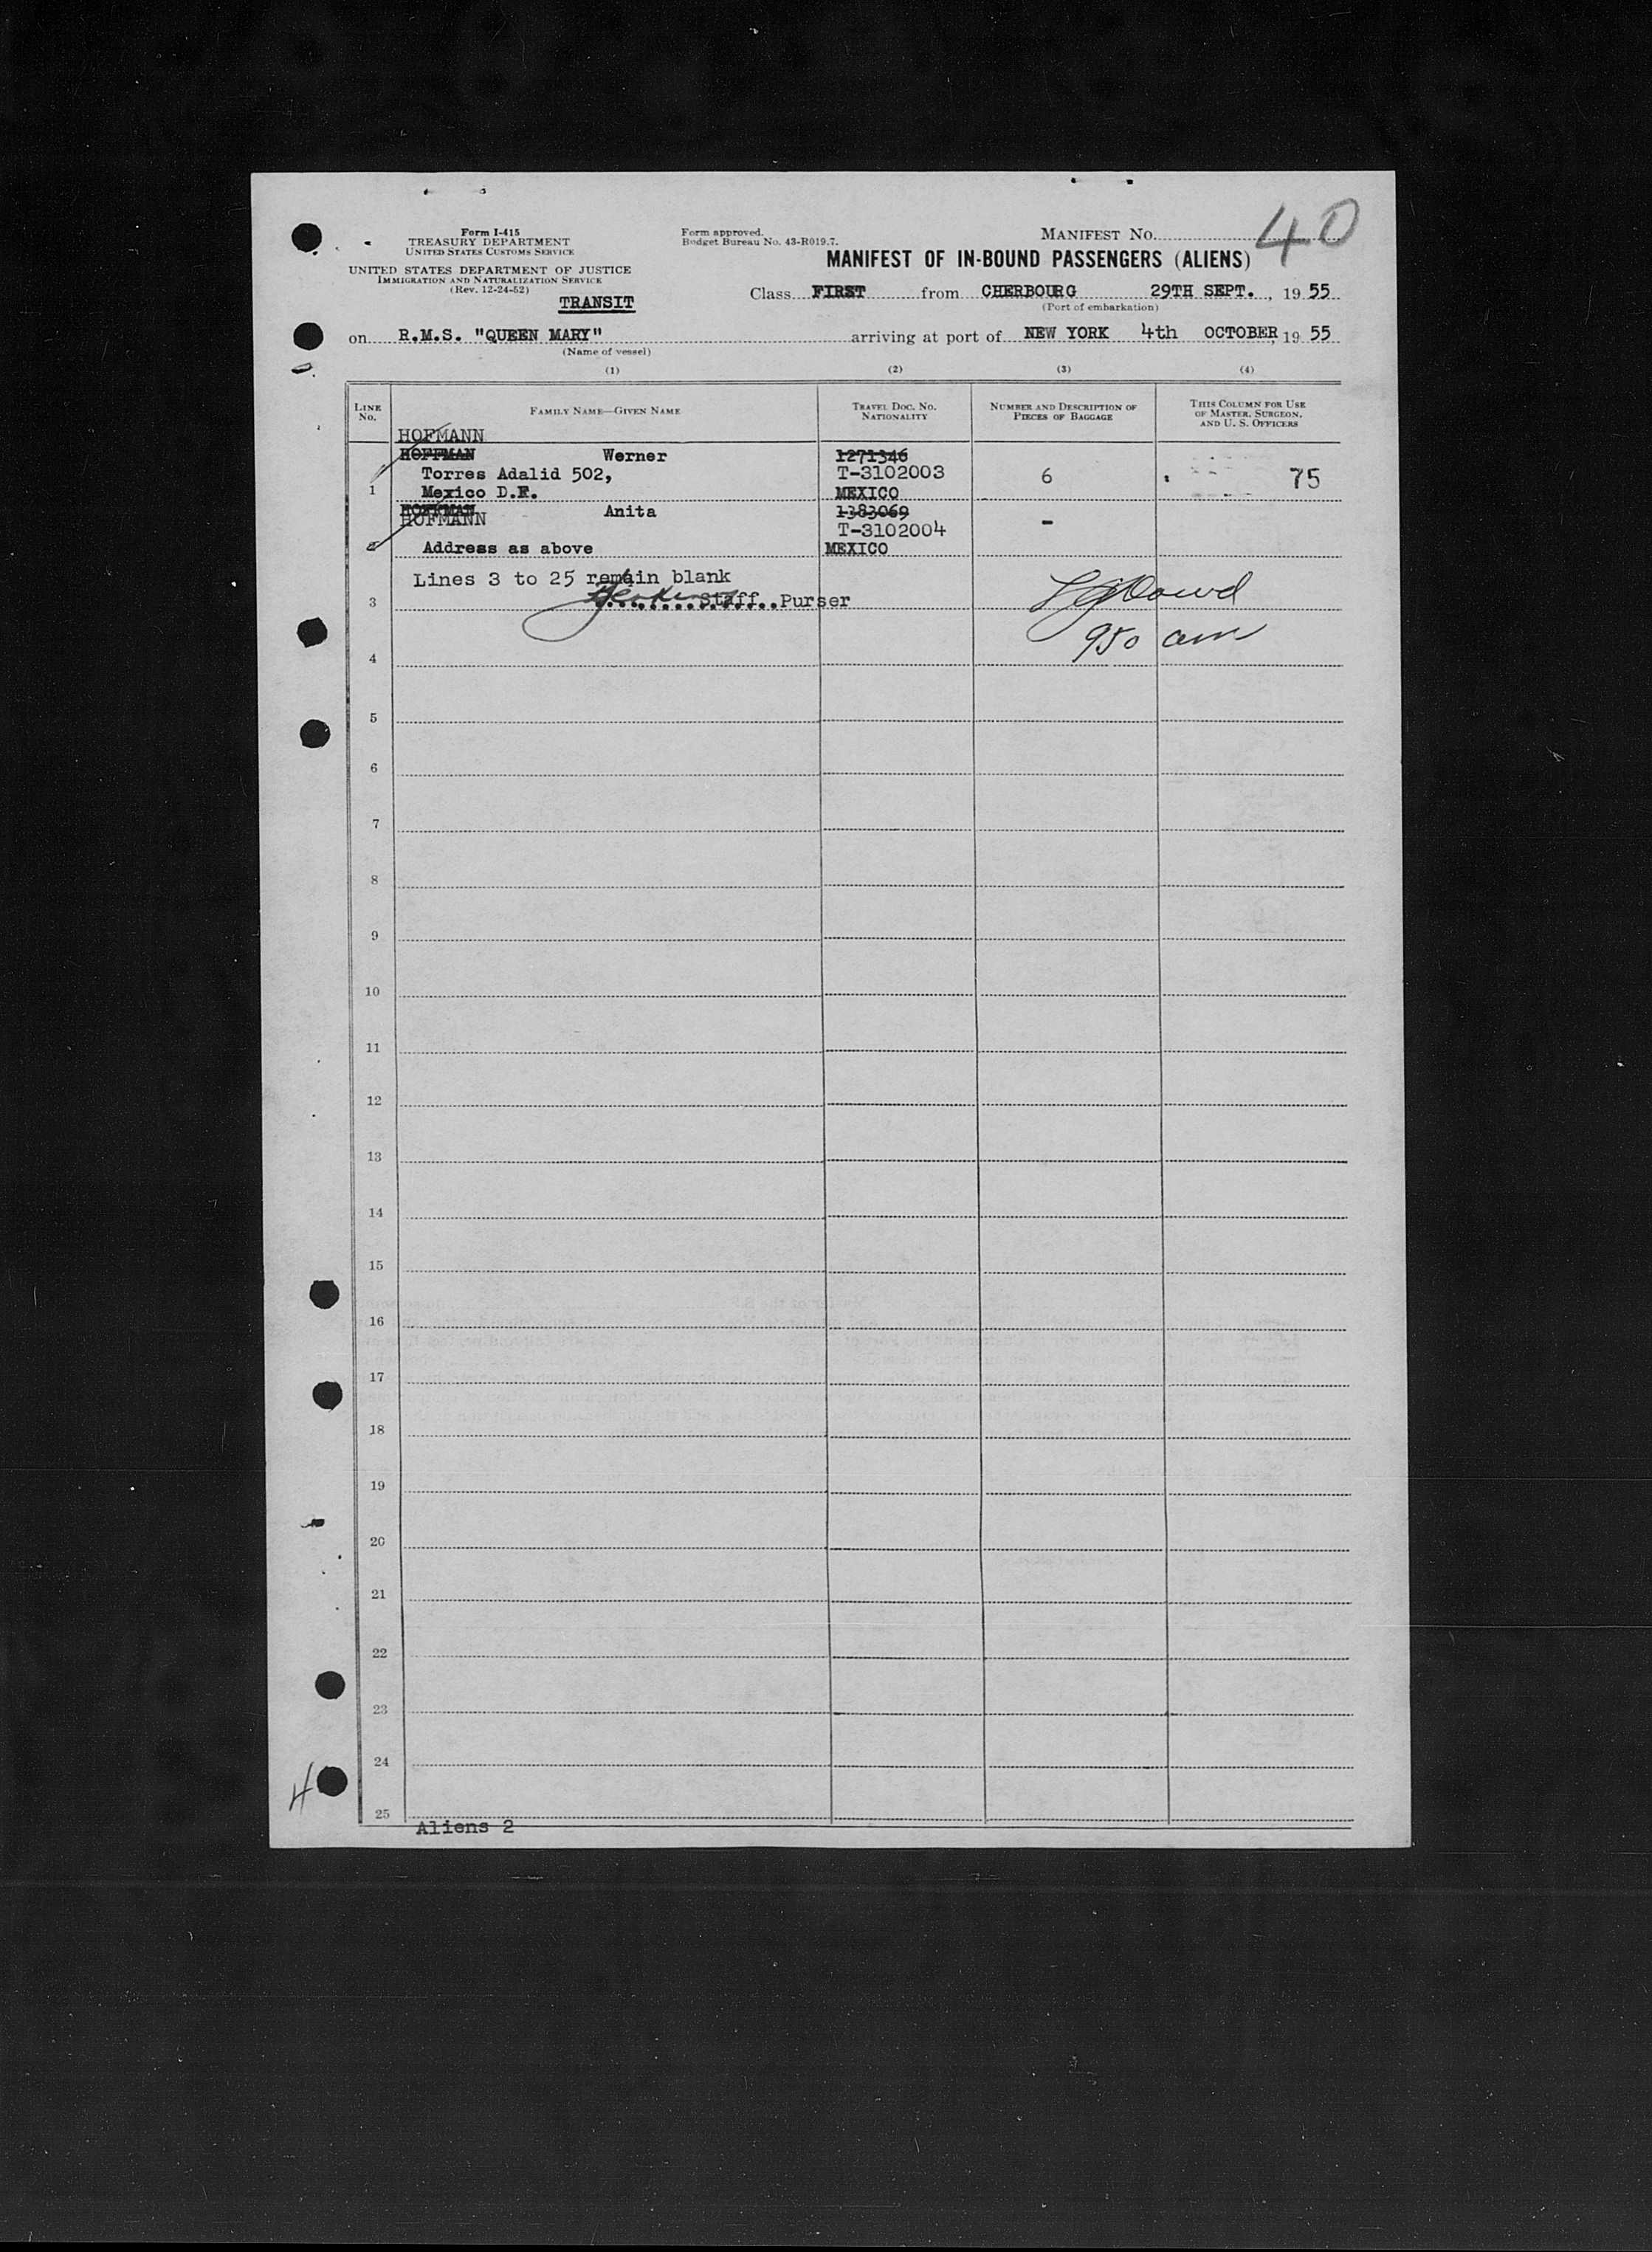 40
Form I-415
TREASURY DEPARTMENT
UNITED STATES CUSTOMS SERVICE
UNITED STATES DEPARTMENT OF JUSTICE
IMMIGRATION AND NATURALIZATION SERVICE
(Rev. 12-24-52)
TRANSIT
Form approved.
Budget Bureau No. 43-R019.7.
MANIFEST NO.
MANIFEST OF IN-BOUND PASSENGERS (ALIENS)
Class FIRST from CHERBOURG 29TH SEPT., 1955
(Port of embarkation)
on R.M.S. "QUEEN MARY" arriving at port of NEW YORK 4th OCTOBER, 1955
(Name of vessel)
(1) (2) (3) (4)
LINE NO. FAMILY NAME—GIVEN NAME TRAVEL DOC. NO. NATIONALITY NUMBER AND DESCRIPTION OF PIECES OF BAGGAGE THIS COLUMN FOR USE OF MASTER, SURGEON, AND U. S. OFFICERS
HOFMANN
HOFFMAN Werner 1271346
Torres Adalid 502, T-3102003 6 75
1 Mexico D.F. MEXICO
HOFFMAN Anita 1383069
HOFMANN T-3102004 -
2 Address as above MEXICO
Lines 3 to 25 remain blank
3 Staff Purser
950 am
4
5
6
7
8
9
10
11
12
13
14
15
16
17
18
19
20
21
22
23
24
4
25
Aliens 2